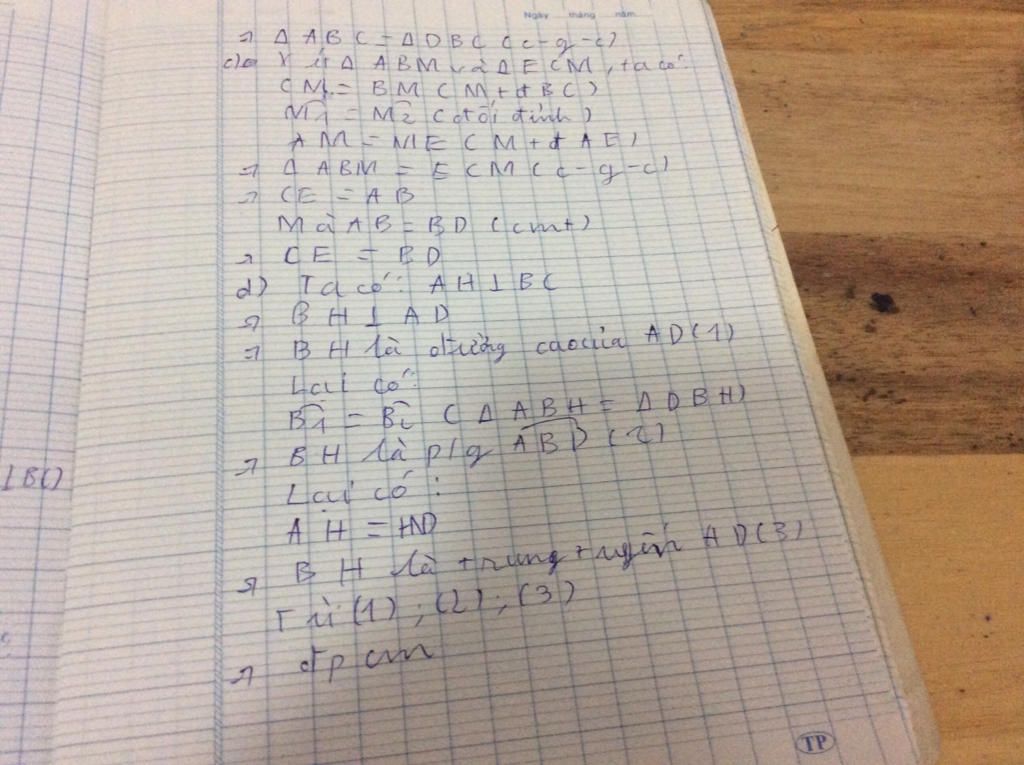 Ngày tháng năm
⇒ Δ ABC = Δ DBC (c-g-c)
c) Xét Δ ABM và Δ ECM, ta có:
CM = BM (M tđ BC)
M1 = M2 (đối đỉnh)
AM = ME (M tđ AE)
⇒ Δ ABM = ECM (c-g-c)
⇒ CE = AB
Mà AB = BD (cmt)
⇒ CE = BD
d) Ta có: AH ⊥ BC
⇒ BH ⊥ AD
⇒ BH là đường cao của AD (1)
Lại có:
B1 = B2 (Δ ABH = Δ DBH)
⇒ BH là p/g ABD (2)
⊥ BC)
Lại có:
AH = HD
⇒ BH là trung AD (3)
Từ (1); (2); (3)
⇒ đpcm
TP